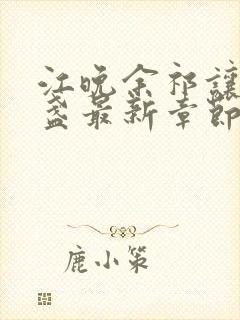 江晚余祁讓
盞最新章節
鹿小策